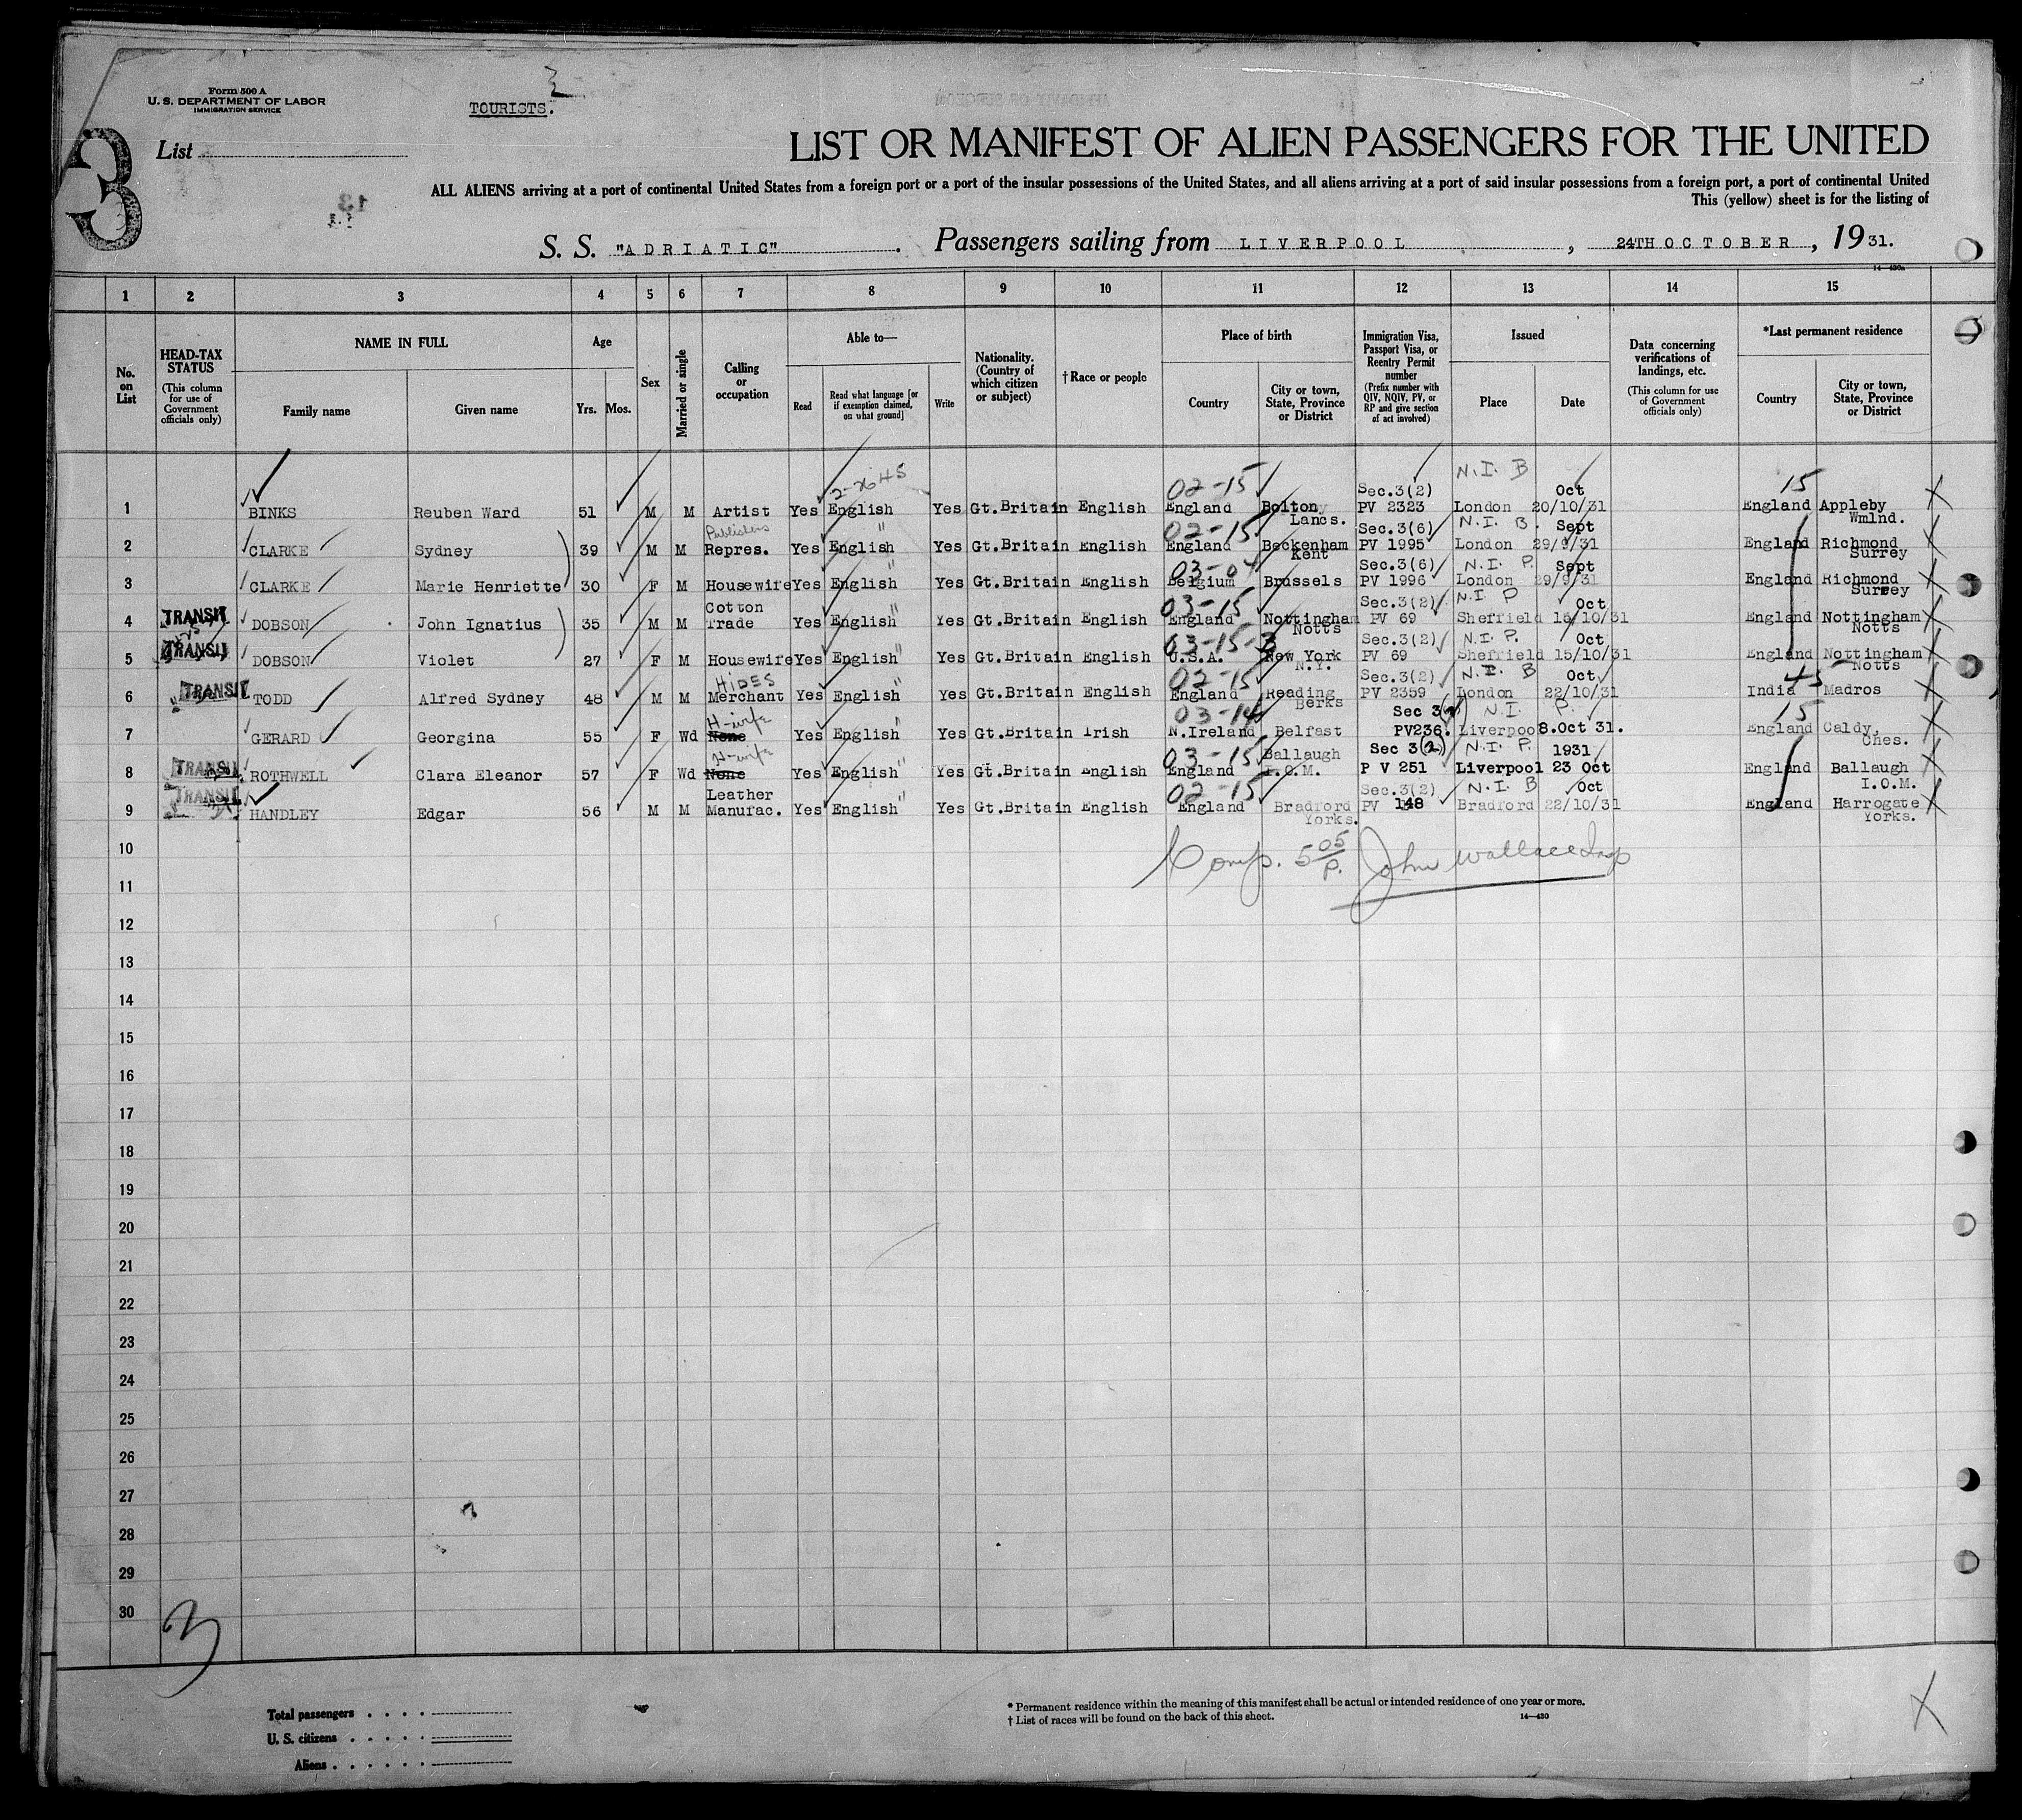 Form 500 A
U. S. DEPARTMENT OF LABOR
IMMIGRATION SERVICE
TOURISTS.
3
List
LIST OR MANIFEST OF ALIEN PASSENGERS FOR THE UNITED
ALL ALIENS arriving at a port of continental United States from a foreign port or a port of the insular possessions of the United States, and all aliens arriving at a port of said insular possessions from a foreign port, a port of continental United
This (yellow) sheet is for the listing of
S. S. "ADRIATIC" . Passengers sailing from LIVERPOOL , 24TH OCTOBER , 19 31.
14—430a
1 2 3 4 5 6 7 8 9 10 11 12 13 14 15
No. on List
HEAD-TAX STATUS (This column for use of Government officials only)
NAME IN FULL
Family name Given name
Age
Yrs. Mos.
Sex
Married or single
Calling or occupation
Able to—
Read Read what language [or if exemption claimed, on what ground] Write
Nationality. (Country of which citizen or subject)
† Race or people
Place of birth
Country City or town, State, Province or District
Immigration Visa, Passport Visa, or Reentry Permit number (Prefix number with QIV, NQIV, PV, or RP and give section of act involved)
Issued
Place Date
Data concerning verifications of landings, etc. (This column for use of Government officials only)
*Last permanent residence
Country City or town, State, Province or District
02-15 Sec.3(2) N.I. B Oct 15
1 BINKS Reuben Ward 51 M M Artist Yes English Yes Gt.Britain English England Bolton Lancs. PV 2323 London 20/10/31 England Appleby Wmlnd.
Publishers 02-15 Sec.3(6) N.I. B. Sept
2 CLARKE Sydney 39 M M Repres. Yes English " Yes Gt.Britain English England Beckenham Kent PV 1995 London 29/9/31 England Richmond Surrey
03-04 Sec.3(6) N.I. P. Sept
3 CLARKE Marie Henriette 30 F M Housewife Yes English " Yes Gt.Britain English Belgium Brussels PV 1996 London 29/9/31 England Richmond Surrey
TRANSIT Cotton 03-15 Sec.3(2) N.I. P Oct
4 DOBSON John Ignatius 35 M M Trade Yes English " Yes Gt.Britain English England Nottingham Notts PV 69 Sheffield 15/10/31 England Nottingham Notts
TRANSIT 03-15-3 Sec.3(2) N.I. P. Oct
5 DOBSON Violet 27 F M Housewife Yes English " Yes Gt.Britain English U.S.A. New York N.Y. PV 69 Sheffield 15/10/31 England Nottingham Notts
TRANSIT HIDES 02-15 Sec.3(2) N.I. B Oct 45
6 TODD Alfred Sydney 48 M M Merchant Yes English " Yes Gt.Britain English England Reading Berks PV 2359 London 22/10/31 India Madros
H-wife 03-14 Sec 3(2) N.I. P. 15
7 GERARD Georgina 55 F Wd None Yes English " Yes Gt.Britain Irish N.Ireland Belfast PV236. Liverpool 8.Oct 31. England Caldy, Ches.
TRANSIT H-wife 03-15 Sec 3(2) N.I. P. 1931
8 ROTHWELL Clara Eleanor 57 F Wd None Yes English " Yes Gt.Britain English England Ballaugh I.O.M. P V 251 Liverpool 23 Oct England Ballaugh I.O.M.
TRANSIT Leather 02-15 Sec.3(2) N.I. B Oct
9 HANDLEY Edgar 56 M M Manufac. Yes English " Yes Gt.Britain English England Bradford Yorks. PV 148 Bradford 22/10/31 England Harrogate Yorks.
10 Comp. 5 05/P. John Wallace Insp
11
12
13
14
15
16
17
18
19
20
21
22
23
24
25
26
27
28
29
30
3
Total passengers
U. S. citizens
Aliens
* Permanent residence within the meaning of this manifest shall be actual or intended residence of one year or more.
† List of races will be found on the back of this sheet. 14—430